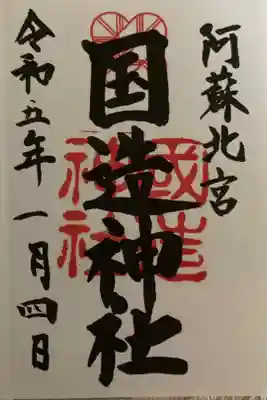 阿蘇北宮
国造神社
令和五年一月四日
國造神社